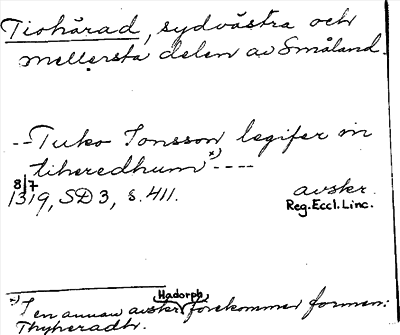 Tiohärad, sydvästra och
mellersta delen av Småland.
--Tuko Jonsson legifer in
tiheredhum x) ----
8/7
1319, SD 3, s. 411. avskr.
Reg. Eccl. Linc.
x) I en annan avskr. Hadorph förekommer formen:
Thyheradh.